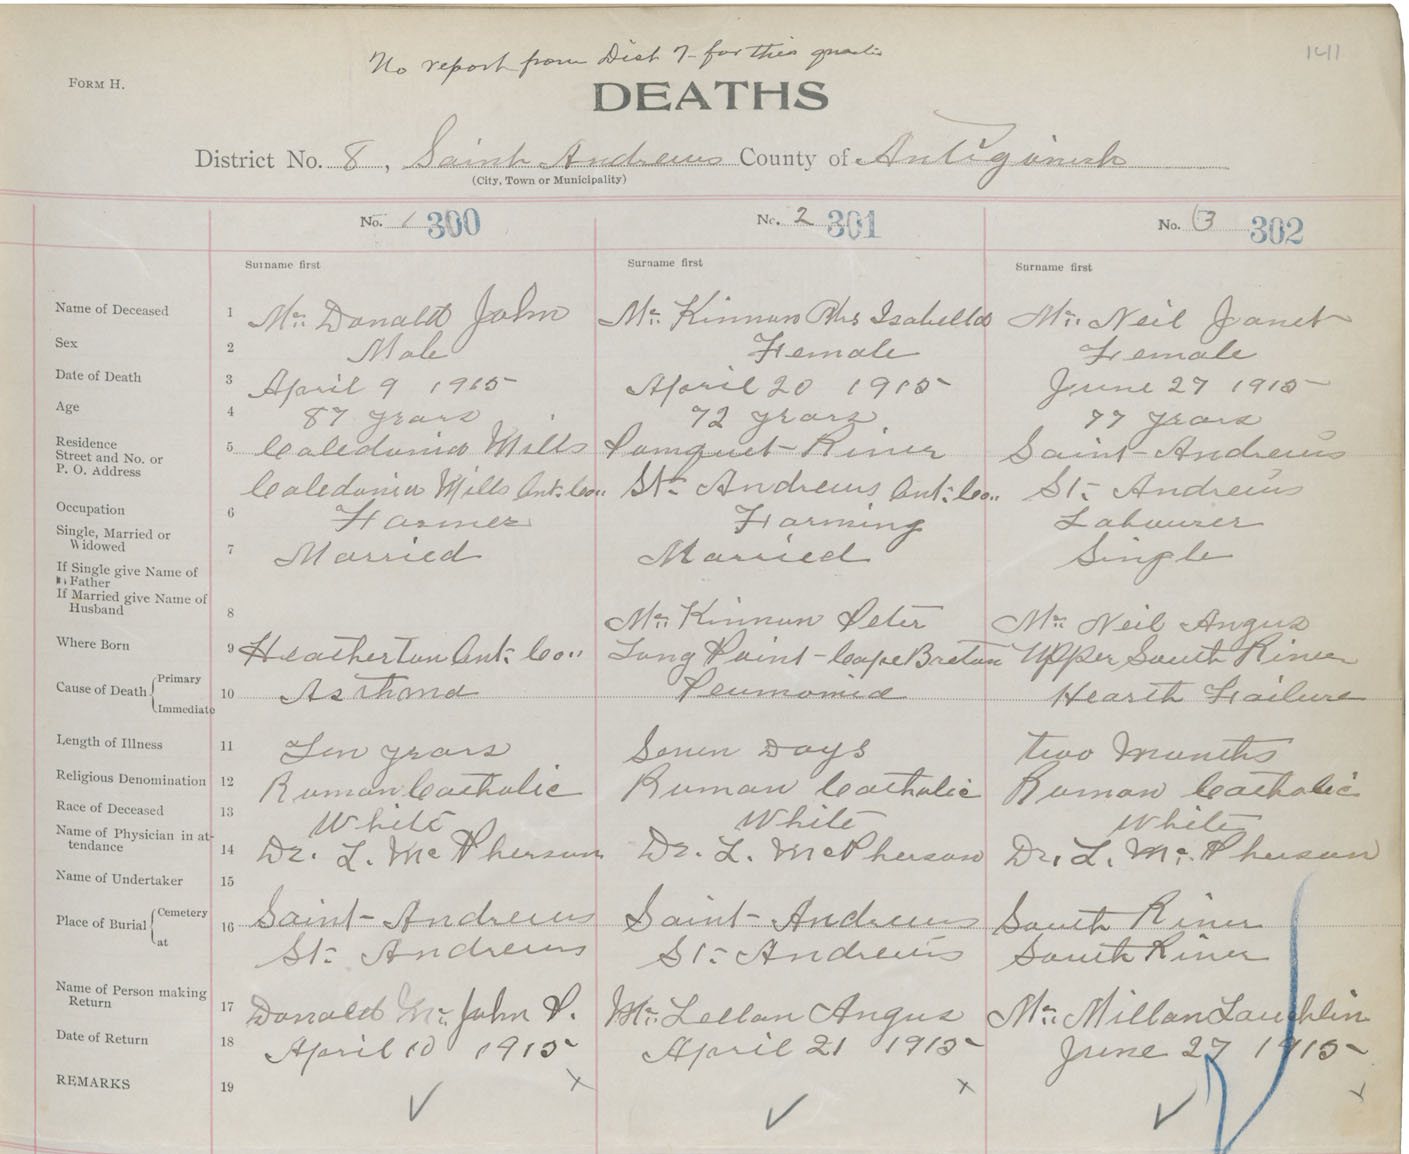 No report from Dist 7 for this quarter
1411
FORM H.
DEATHS
District No. 8, Saint Andrews County of Antigonish
(City, Town or Municipality)
No. 1 300 No. 2 301 No. 3 302
Surname first Surname first Surname first
Name of Deceased 1 Mc Donald John Mc Kinnon Mrs Isabella Mc Neil Janet
Sex 2 Male Female Female
Date of Death 3 April 9 1915 April 20 1915 June 27 1915
Age 4 87 years 72 years 77 years
Residence Street and No. or P. O. Address 5 Caledonia Mills Pomquet River Saint Andrews
Caledonia Mills Ant. Co.. St. Andrews Ant. Co.. St. Andrews
Occupation 6 Farmer Farming Labourer
Single, Married or Widowed 7 Married Married Single
If Single give Name of Father
If Married give Name of Husband 8 Mc Kinnon Peter Mc Neil Angus
Where Born 9 Heatherton Ant. Co.. Long Point - Cape Breton Upper South River
Cause of Death { Primary Immediate 10 Asthma Peumonia Hearth Failure
Length of Illness 11 Ten years Seven Days two Months
Religious Denomination 12 Roman Catholic Roman Catholic Roman Catholic
Race of Deceased 13 White White White
Name of Physician in attendance 14 Dr. L. McPherson Dr. L. McPherson Dr. L. Mc Pherson
Name of Undertaker 15
Place of Burial { Cemetery 16 Saint-Andrews Saint-Andrews South River
at St. Andrews St. Andrews South River
Name of Person making Return 17 Donald Mc John P. Mc Lellan Angus Mc Millan Lauchlin
Date of Return 18 April 10 1915 April 21 1915 June 27 1915
REMARKS 19